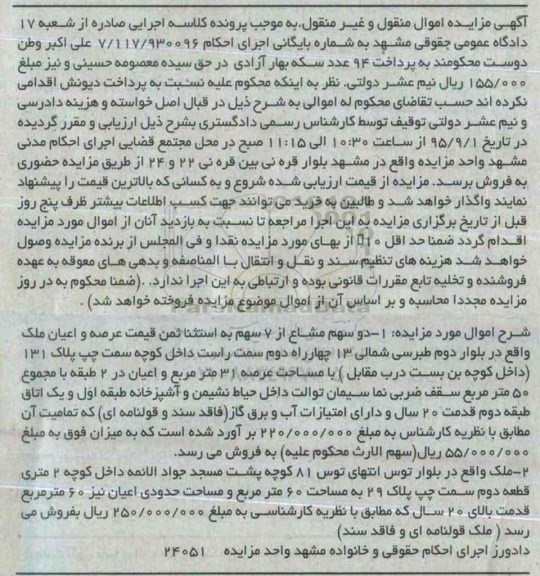 آگهی مزایده اموال منقول و غیر منقول.به موجب پرونده کلاسه اجرایی صادره از شعبه ۱۷
دادگاه عمومی حقوقی مشهد به شماره بایگانی اجرای احکام ۷/۱۱۷/۹۳۰۰۹۶ علی اکبر وطن
دوست محکومند به پرداخت ۹۴ عدد سکه بهار آزادی در حق سیده معصومه حسینی و نیز مبلغ
۱۵۵/۰۰۰ ریال نیم عشر دولتی. نظر به اینکه محکوم علیه نسبت به پرداخت دیونش اقدامی
نکرده اند حسب تقاضای محکوم له اموالی به شرح ذیل در قبال اصل خواسته و هزینه دادرسی
و نیم عشر دولتی توقیف توسط کارشناس رسمی دادگستری بشرح ذیل ارزیابی و مقرر گردیده
در تاریخ ۹۵/۹/۱ از ساعت ۱۰:۳۰ الی ۱۱:۱۵ صبح در محل مجتمع قضایی اجرای احکام مدنی
مشهد واحد مزایده واقع در مشهد بلوار قره نی بین قره نی ۲۲ و ۲۴ از طریق مزایده حضوری
به فروش برسد. مزایده از قیمت ارزیابی شده شروع و به کسانی که بالاترین قیمت را پیشنهاد
نمایند واگذار خواهد شد و طالبین به خرید می توانند جهت کسب اطلاعات بیشتر ظرف پنج روز
قبل از تاریخ برگزاری مزایده به این اجرا مراجعه تا نسبت به بازدید آنان از اموال مورد مزایده
اقدام گردد ضمنا حد اقل ۱۰ از بهای مورد مزایده نقدا و فی المجلس از برنده مزایده وصول
خواهد شد هزینه های تنظیم سند و نقل و انتقال بالمناصفه و بدهی های معوقه به عهده
فروشنده و تخلیه تابع مقررات قانونی بوده و ارتباطی به این اجرا ندارد. .(ضمنا محکوم به در روز
مزایده مجددا محاسبه و بر اساس آن از اموال موضوع مزایده فروخته خواهد شد) .
شرح اموال مورد مزایده: ۱-دو سهم مشاع از ۷ سهم به استثنا ثمن قیمت عرصه و اعیان ملک
واقع در بلوار دوم طبرسی شمالی ۱۳ چهارراه دوم سمت راست داخل کوچه سمت چپ پلاک ۱۳۱
(داخل کوچه بن بست درب مقابل ) با مساحت عرصه ۳۱ متر مربع و اعیان در ۲ طبقه با مجموع
۵۰ متر مربع سقف ضربی نما سیمان توالت داخل حیاط نشیمن و آشپزخانه طبقه اول و یک اتاق
طبقه دوم قدمت ۲۰ سال و دارای امتیازات آب و برق گاز(فاقد سند و قولنامه ای) که تمامیت آن
مطابق با نظریه کارشناس به مبلغ ۲۲۰/۰۰۰/۰۰۰ بر آورد شده است که به میزان فوق به مبلغ
۵۵/۰۰۰/۰۰۰ ریال(سهم الارث محکوم علیه) به فروش می رسد.
۲-ملک واقع در بلوار توس انتهای توس ۸۱ کوچه پشت مسجد جواد الائمه داخل کوچه ۲ متری
قطعه دوم سمت چپ پلاک ۲۹ به مساحت ۶۰ متر مربع و مساحت حدودی اعیان نیز ۶۰ مترمربع
قدمت بالای ۲۰ سال که مطابق با نظریه کارشناسی به مبلغ ۲۵۰/۰۰۰/۰۰۰ ریال بفروش می
رسد ( ملک قولنامه ای و فاقد سند)
دادورز اجرای احکام حقوقی و خانواده مشهد واحد مزایده ۲۴۰۵۱